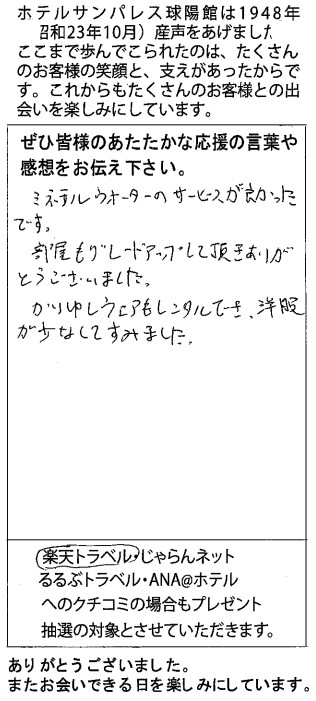 ホテルサンパレス球陽館は1948年
(昭和23年10月）産声をあげました
ここまで歩んでこられたのは、たくさん
のお客様の笑顔と、支えがあったからで
す。これからもたくさんのお客様との出
会いを楽しみにしています。
ぜひ皆様のあたたかな応援の言葉や
感想をお伝え下さい。
ミネラルウオーターのサービスが良かった
です。
部屋もグレードアップして頂きありが
とうございました。
かりゆしウェアもレンタルでき、洋服
が少なくてすみました。
楽天トラベル・じゃらんネット
るるぶトラベル・ANA@ホテル
へのクチコミの場合もプレゼント
抽選の対象とさせていただきます。
ありがとうございました。
またお会いできる日を楽しみにしています。